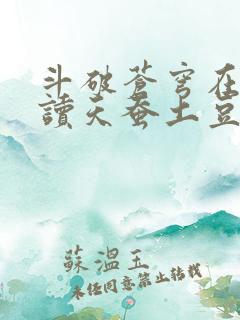 斗破苍穹在
讀天蚕土豆
蘇溫玉
未经同意禁止转载